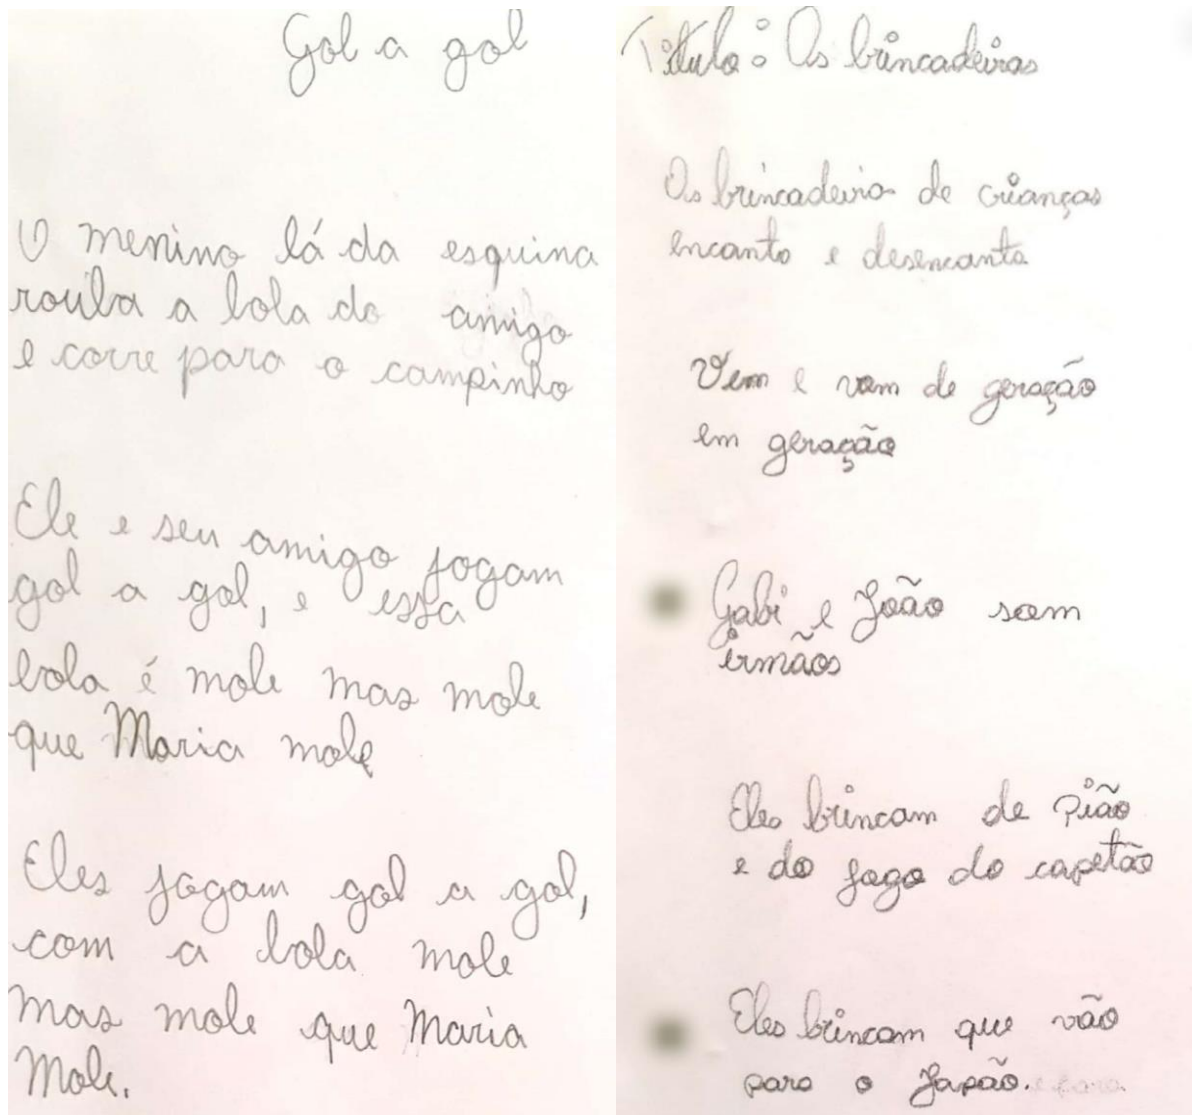 Gol a gol
O menino lá da esquina
rouba a bola do amigo
e corre para o campinho
Ele e seu amigo jogam
gol a gol, e essa
bola é mole mas mole
que Maria mole
Eles jogam gol a gol,
com a bola mole
mas mole que Maria
Mole.
Titulo: As brincadeiras
As brincadeira de crianças
encanto e desencanta
Vem e vam de geração
em geração
Gabi e João sam
irmãos
Eles brincam de pião
e do jogo do capetão
Eles brincam que vão
para o Japão.